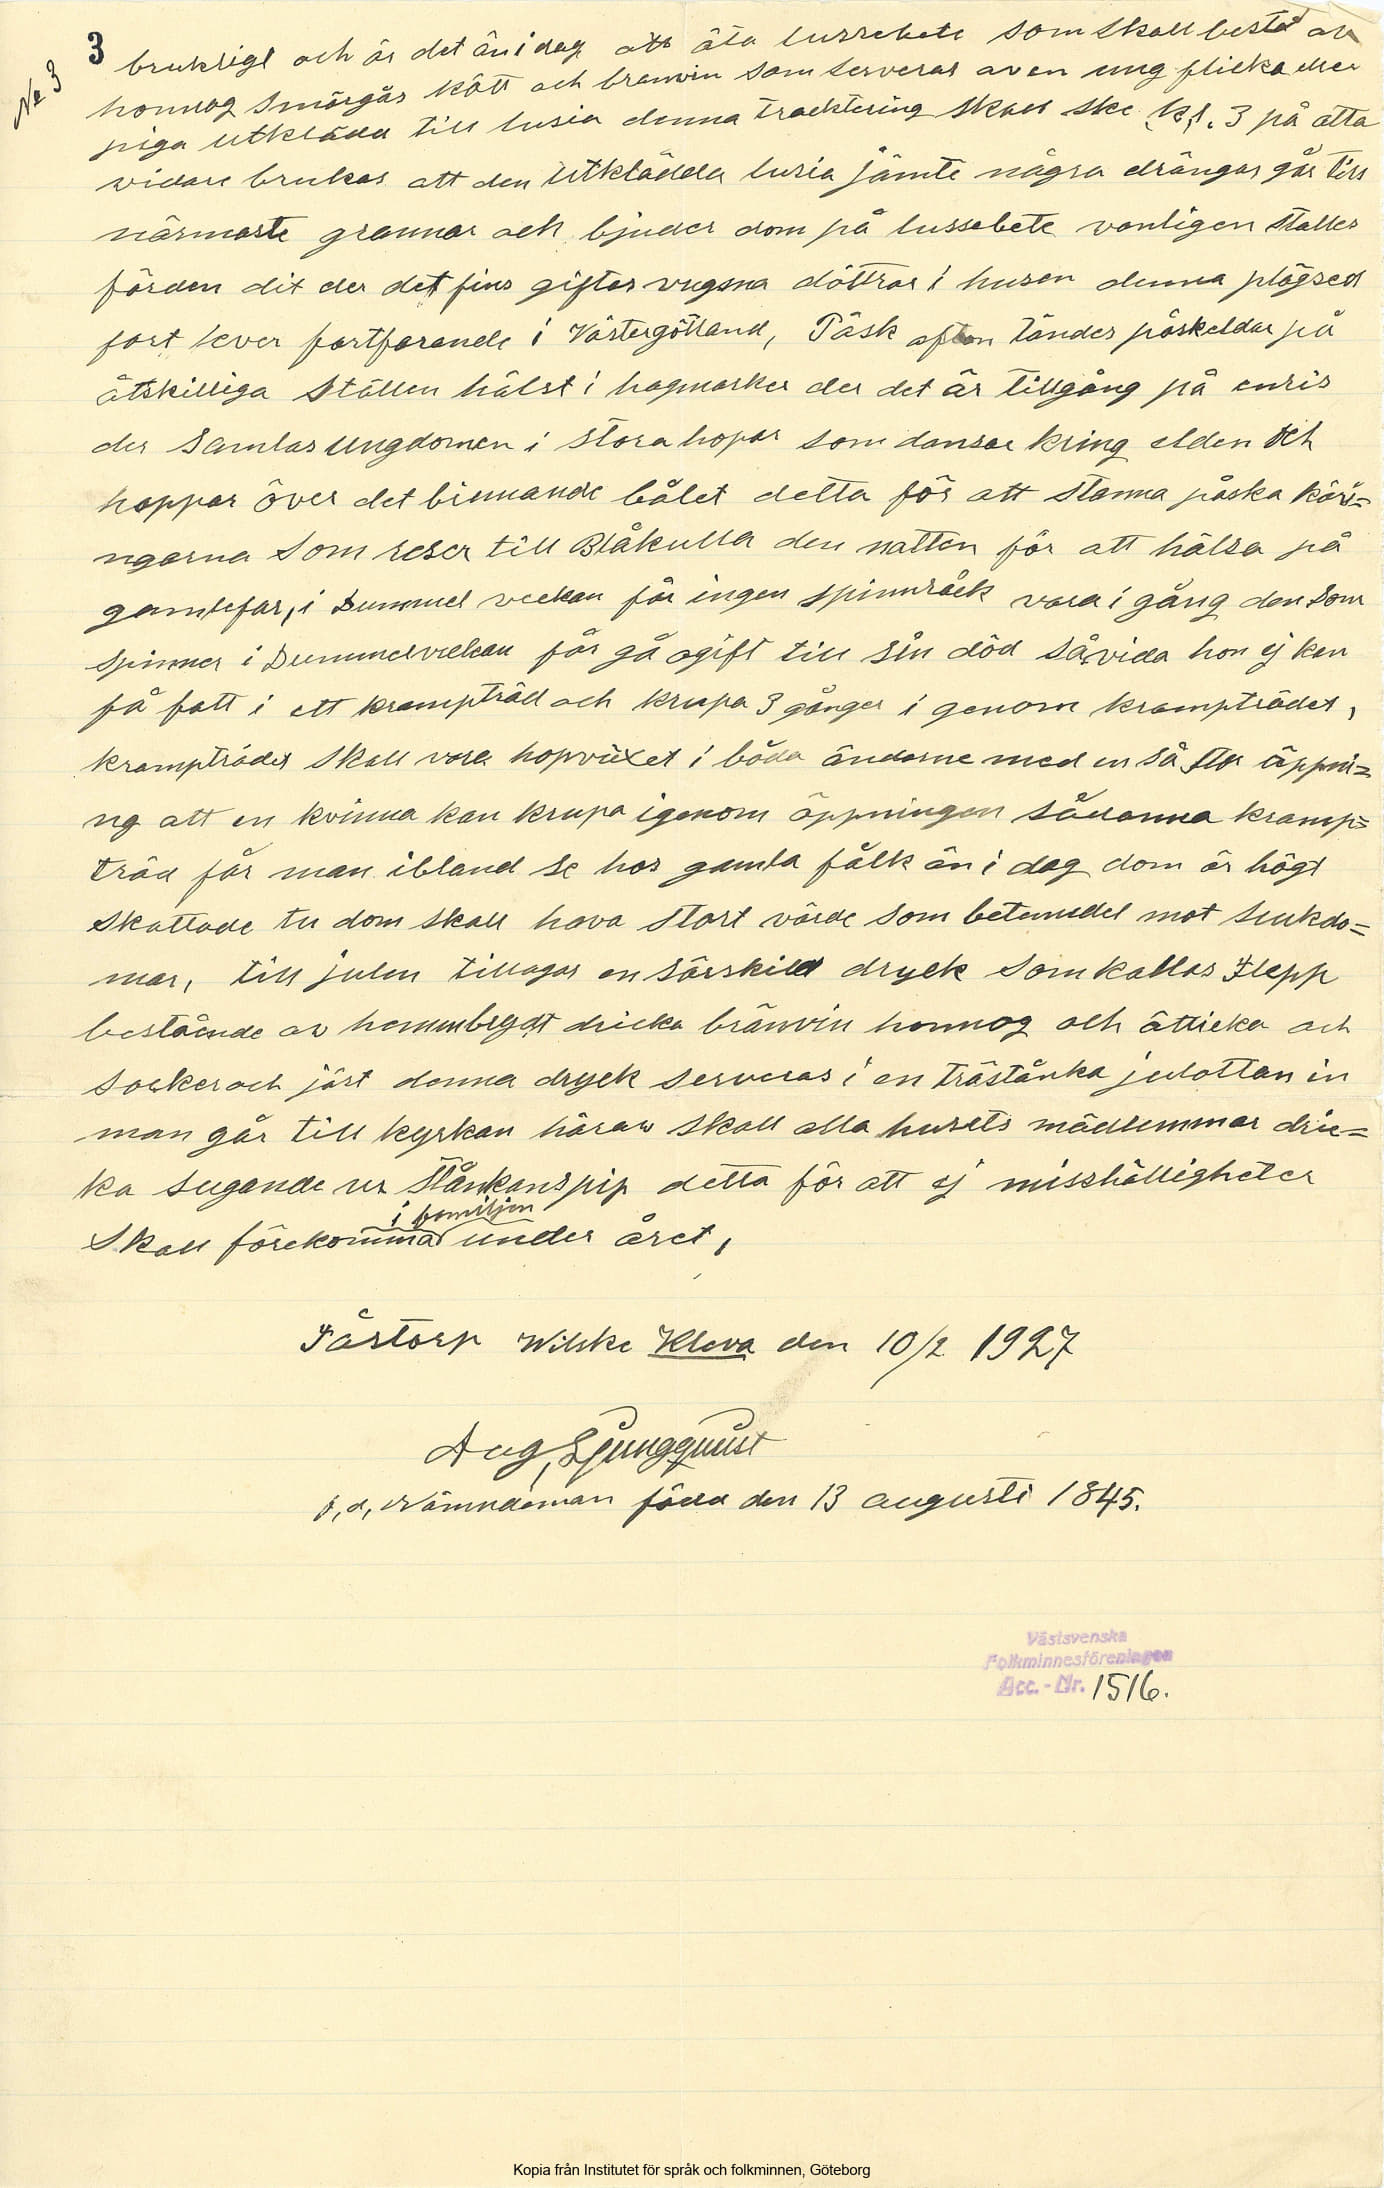 No 3
3 brukligt och är det än i dag att äta lussebete som skall bestå av
honnog smörgås kött och bränvin som serveras av en ung flicka eller
piga utklädd till lusia denna tracktering skall ske kl. 3 på åtta
vidare brukas att den utklädda lusia jämte några drängar går till
närmaste grannar och bjuder dom på lussebete vanligen ställes
färden dit der det fins giftas vugsna döttrar i husen denna plägsed
fort lever fortfarande i Västergötland, Påsk afton tändes påskeldar på
åtskilliga ställen hälst i hagmarker der det är tillgång på enris
der samlas ungdomen i stora hopar som dansar kring elden och
hoppar över det brinnande bålet detta för att stanna påska käri=
ngarna som reser till Blåkulla den natten för att hälsa på
gamlefar, i Dummel veckan får ingen spinnråck vara i gång den som
spinner i Dummelveckan får gå ogift till sin död såvida hon ej kan
få fatt i ett krampträd och krupa 3 gånger i genom krampträdet,
krampträdet skall vara hopvüxet i båda ändarne med en så stor äppni=
ng att en kvinna kan krupa igenom äppningen sådanna kramp=
träd får man ibland se hos gamla fålk än i dag dom är högt
skattade ty dom skall hava stort värde som botemedel mot sjukdo=
mar, till julen tillagas en särskild dryck som kallas Flepp
bestående av hemmbrygt dricka bränvin honnog och ätticka och
socker och jäst denna dryck serveras i en trästånka julottan in
man går till kyrkan härav skall alla husets mädlemmar dric=
ka sugande ur stånkans pip detta för att ej misshälligheter
i familjen
skall förekomma under året,
Fårstorp Wilske Kleva den 10/2 1927
Aug, Ljungquist
f, d, Nämndeman född den 13 augusti 1845.
Västsvenska
Folkminnesföreningen
Acc. - Nr. 1516.
Kopia från Institutet för språk och folkminnen, Göteborg